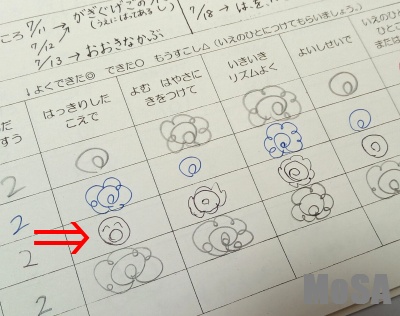 ころ 7/11 → がぎぐげごの
(うえにはってあるし)
7/12
7/18 → は、を、
7/13 → おおきなかぶ
↓よくできた◎ できた○ もうすこし△(いえのひとにつけてもらいましょう。)
すう
はっきりした
こえで
よむ はやさに
きをつけて
いきいき
リズムよく
よいしせいで
いえのひ
ひとこ
または
2
2
2
2
MoSA